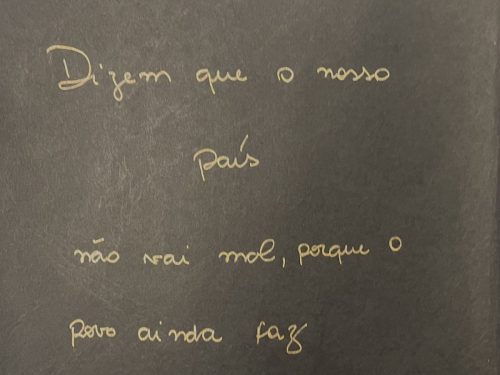 Dizem que o nosso
país
não vai mal, porque o
povo ainda faz